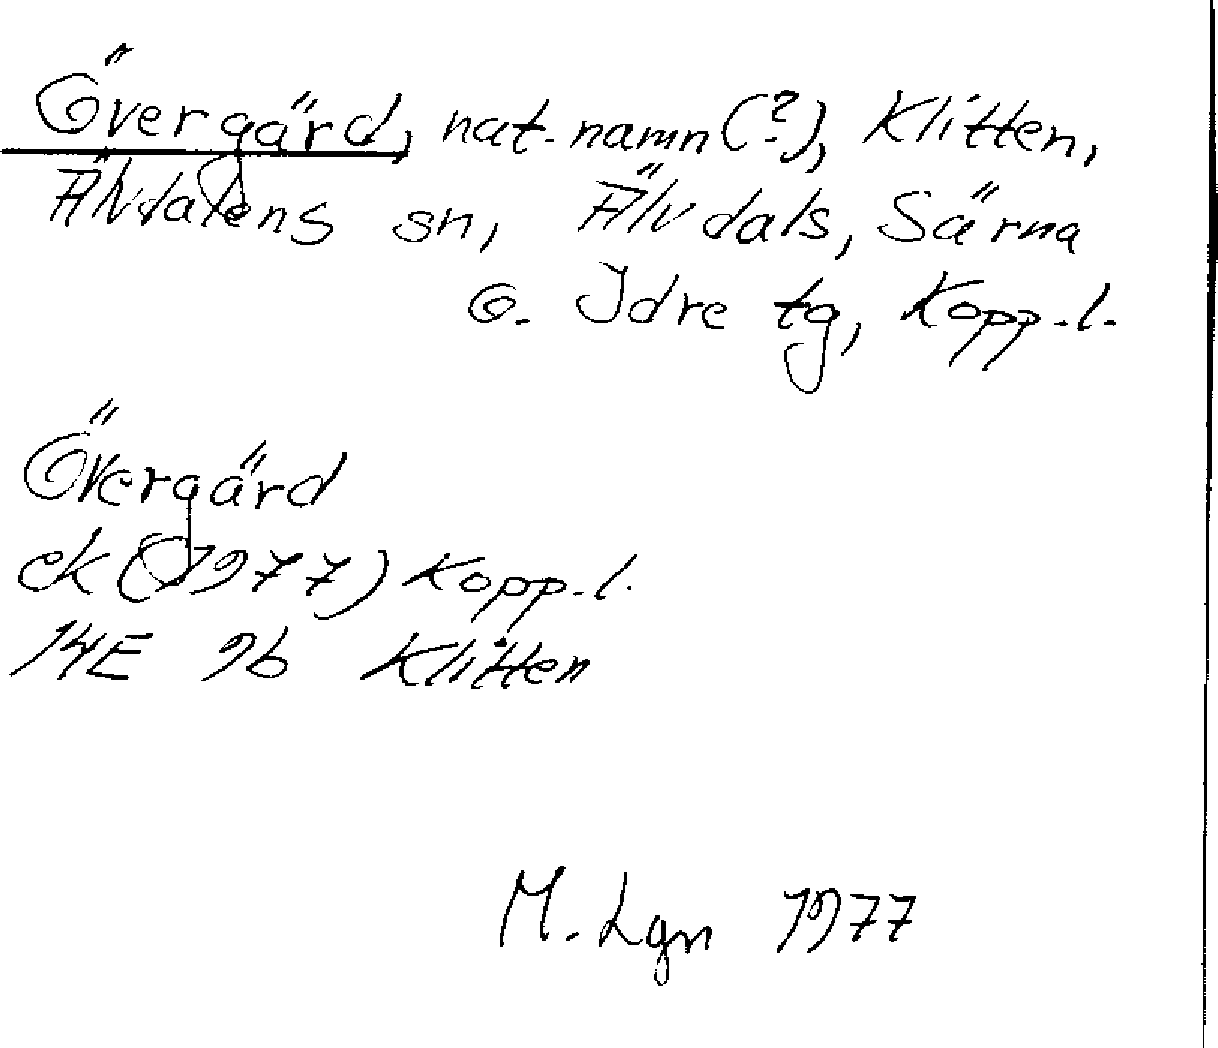 Övergärd, nat.namn(?), Klitten,
Älvdalens sn, Älvdals, Särna
o. Idre tg, Kopp.l.
Övergärd
ek (1977) Kopp.l.
14E 9b Klitten
M. Lgn 1977